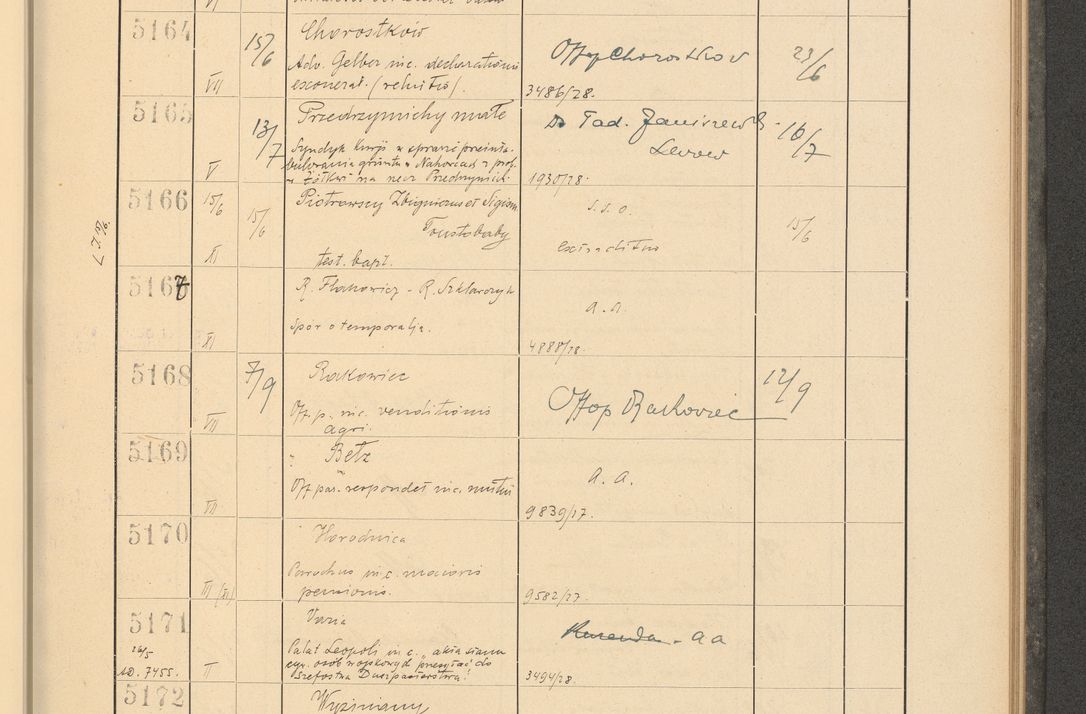 5164
15/6
VII
Chorostków
Adv. Gelber nic. declarationis
exonerat. (relictio).
Offp Chorostków
3486/28.
23/6
5165
13/7
V
Przedrzymichy małe
Syndyk kurji w sprawie preinta-
bulowania gruntu w Nahorcach z prof.
w Żółkwi na rzecz Przedrzymich.
Dr Tad. Janiszewski
Lwów
1930/28.
16/7
5166
15/6
15/6
XI
Piotrowscy Zbigniew et Sigism.
Toustobaby
test. bapt.
s. s. o.
extraditus
15/6
5167
XI
R. Flakowicz - R. Szklarczyk
Spór o temporalja.
a. a.
4888/28.
5168
7/9
VII
Rakowiec
Off. p. nic. venditionis
agri.
Offop Rakowiec
12/9
5169
VII
Bełz
Off. par. respondet nic. mutui
a. a.
9839/27.
5170
III (XI)
Horodnica
Parochus nic. maioris
pensionis.
9582/27.
5171
26/5
AD. 7455.
II
Varia
Palat. Leopoli nic. "akta stanu
cyw. osób wojskowych przesyłać do
Szefostwa Duszpasterstwa!
Kurenda - aa
3494/28.
5172